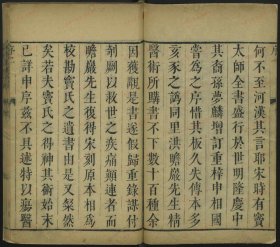 何不至河漢其言耶宋時有竇
太師全書盛行於世明隆慶中
其裔孫夢麟增訂重梓申相國
嘗為之序惜其板久失傳本多
亥豕之譌同里洪瞻巖先生精
醫術所購書不下數十百種余
因獲觀是書遂假歸重錄謀付
剞劂以救世之疾痛顛連者而
瞻巖先生復得宋刻原本相為
校勘竇氏之遺書由是又粲然
矣若夫竇氏之得神其術始末
已詳申序茲不具述特以瘍醫